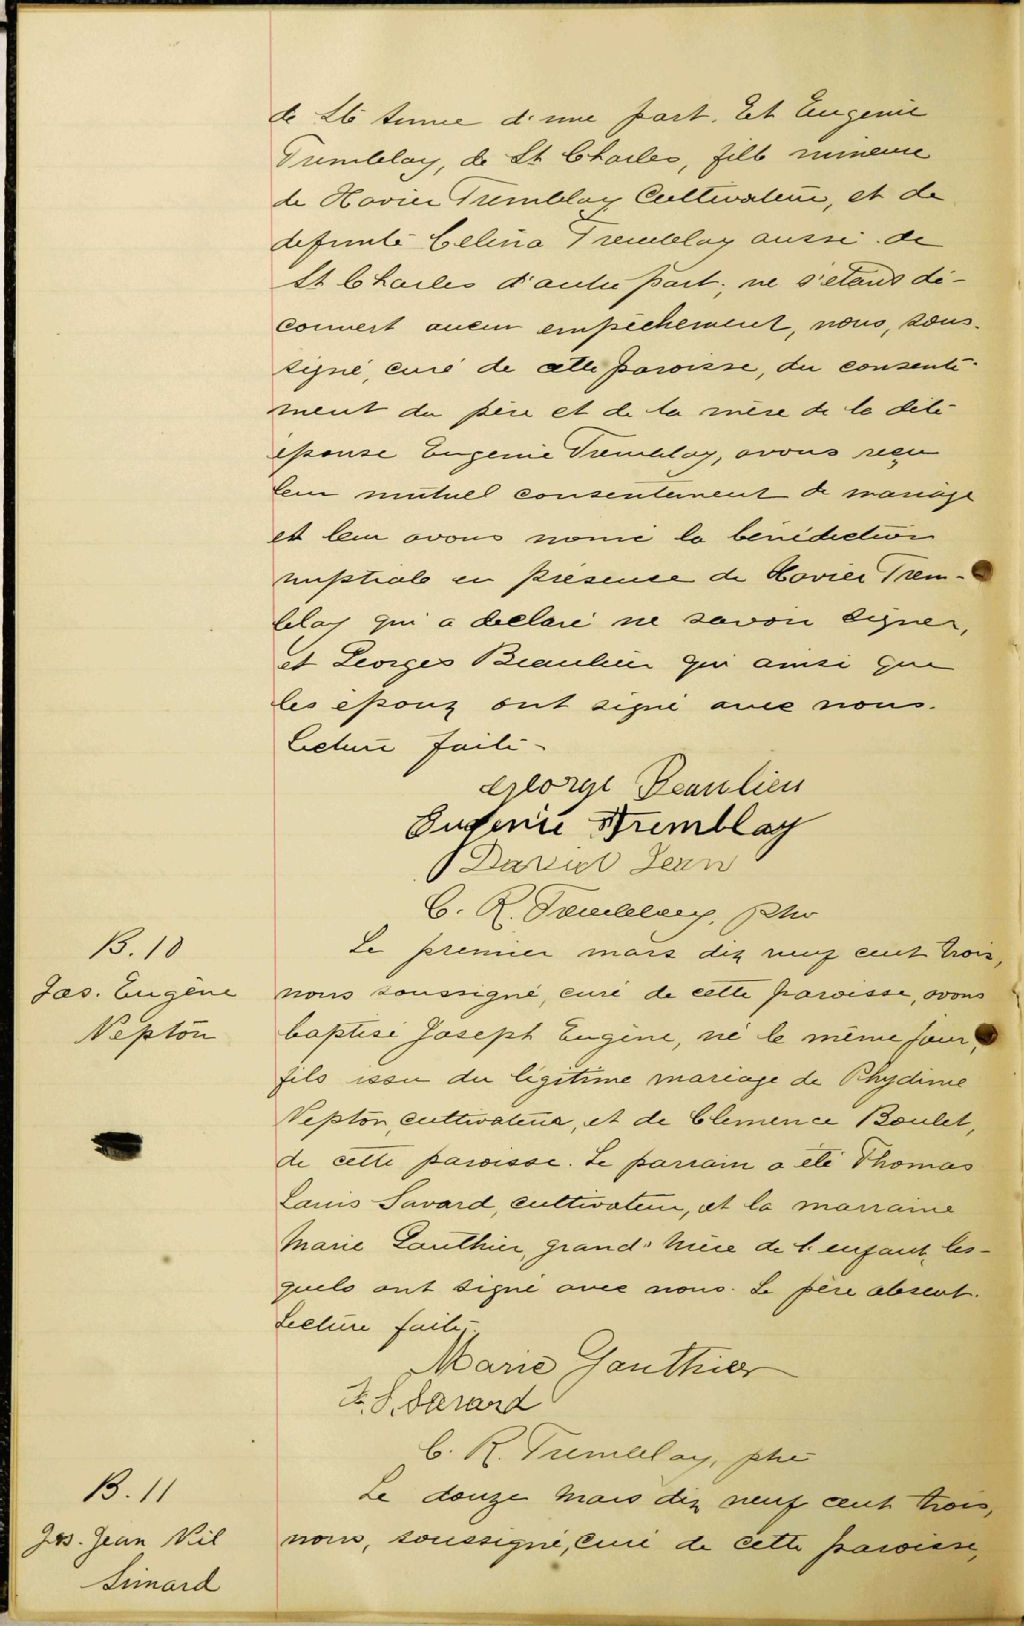 de Ste Anne d'une part. Et Eugenie
Tremblay, de St Charles, fille mineure
de Xavier Tremblay Cultivateur, et de
defunte Celina Tremblay aussi de
St Charles d'autre part; ne s'etant dé-
couvert aucun empêchement, nous, sous-
signé, curé de cette paroisse, du consente-
ment du père et de la mère de la dite
épouse Eugenie Tremblay, avons reçu
leur mutuel consentement de mariage
et leur avons la bénédiction
nuptiale en présence de Xavier Trem-
blay qui a declaré ne savoir signer,
et Georges Beaulieu qui ainsi que
les épouz ont signé avec nous.
Lecture faite -
George Beaulieu
Eugenie Tremblay
David Jean
C. R. Tremblay, ptre
B. 10
Jos. Eugène
Nepton
Le premier mars diz neuf cent trois,
nous soussigné, curé de cette paroisse, avons
baptisé Joseph Eugène, né le même jour,
fils issu du légitime mariage de Phydime
Nepton, cultivateur, et de Clemence Boulet,
de cette paroisse. Le parrain a été Thomas
Louis Savard, cultivateur, et la marraine
Marie Gauthier, grand'mère de l'enfant, les-
quels ont signé avec nous. Le père absent.
Lecture faite -
Marie Gauthier
S. Savard
C. R. Tremblay, ptre
B. 11
Jos. Jean Nil
Simard
Le douze mars diz neuf cent trois,
nous, soussigné, curé de cette paroisse,